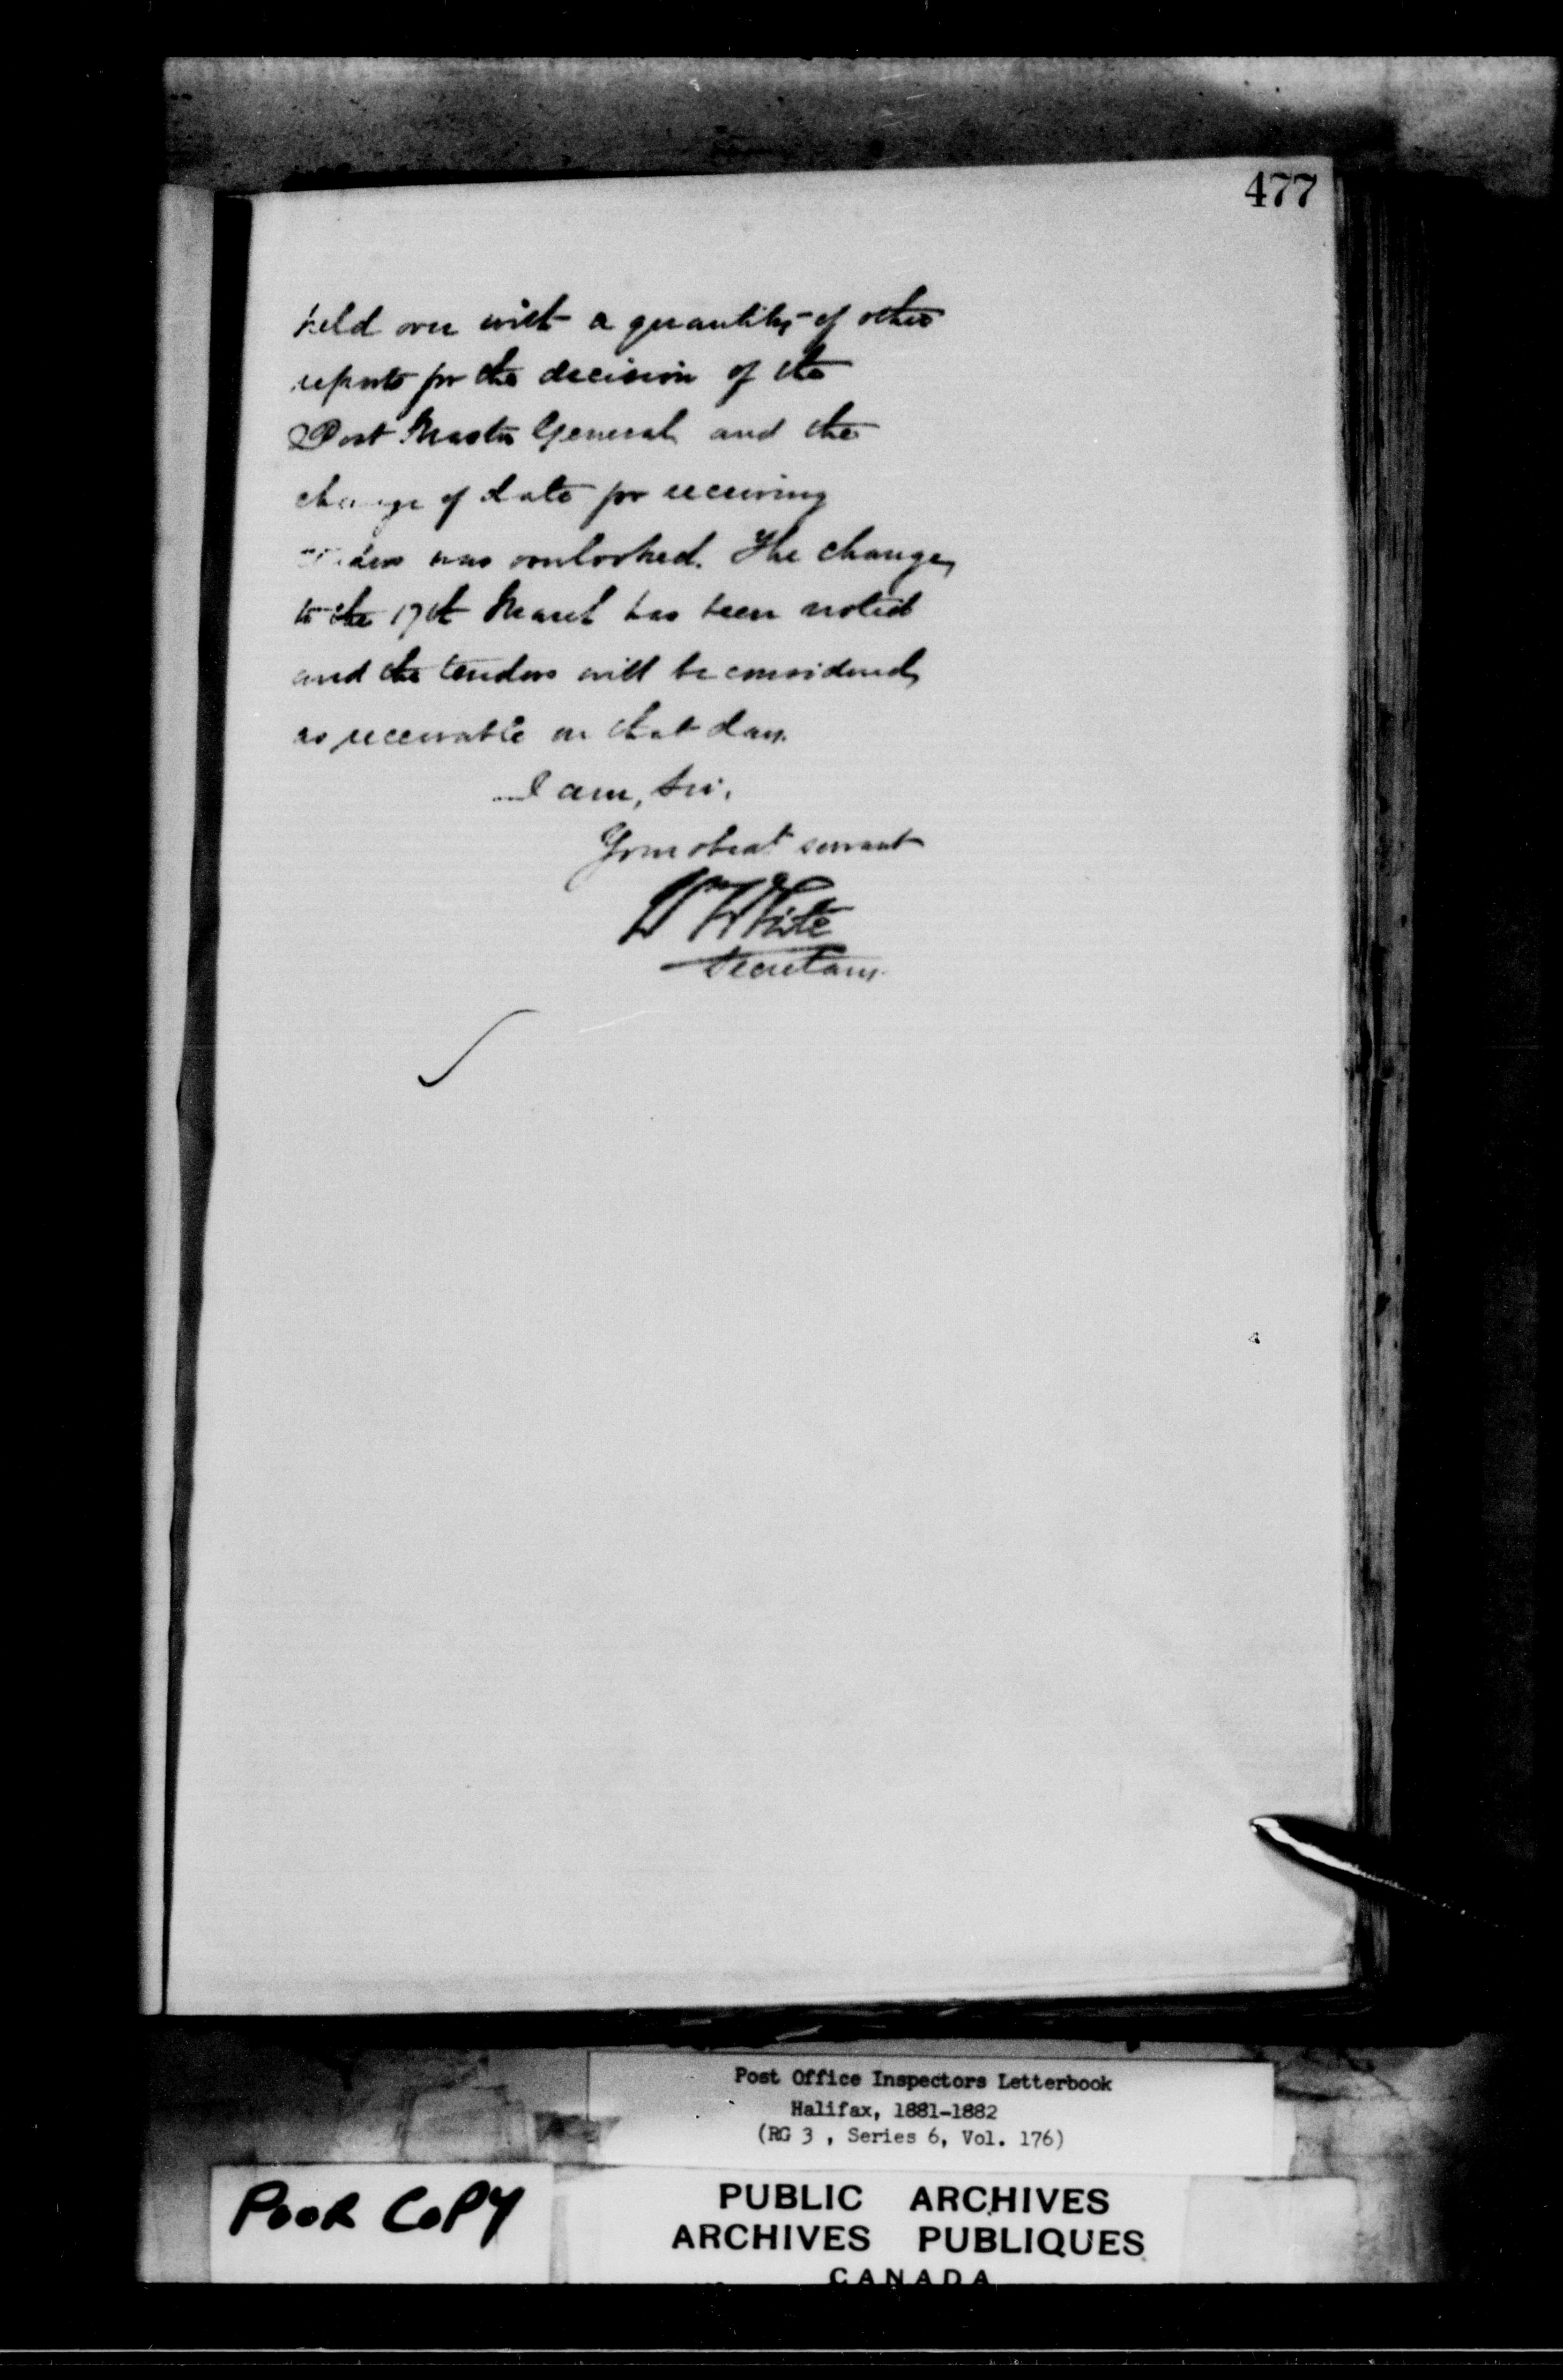 477
held over with a quantity of other
reports for the decision of the
Post Master General and the
change of date for receiving
was overlooked. The change
to the 17th March has been noted
and the tenders will be considered
as receivable on that day.
I am, Sir,
Your obedt servant
W White
Secretary.
Post Office Inspectors Letterbook
Halifax, 1881-1882
(RG 3 , Series 6, Vol. 176)
POOR COPY
PUBLIC ARCHIVES
ARCHIVES PUBLIQUES
CANADA